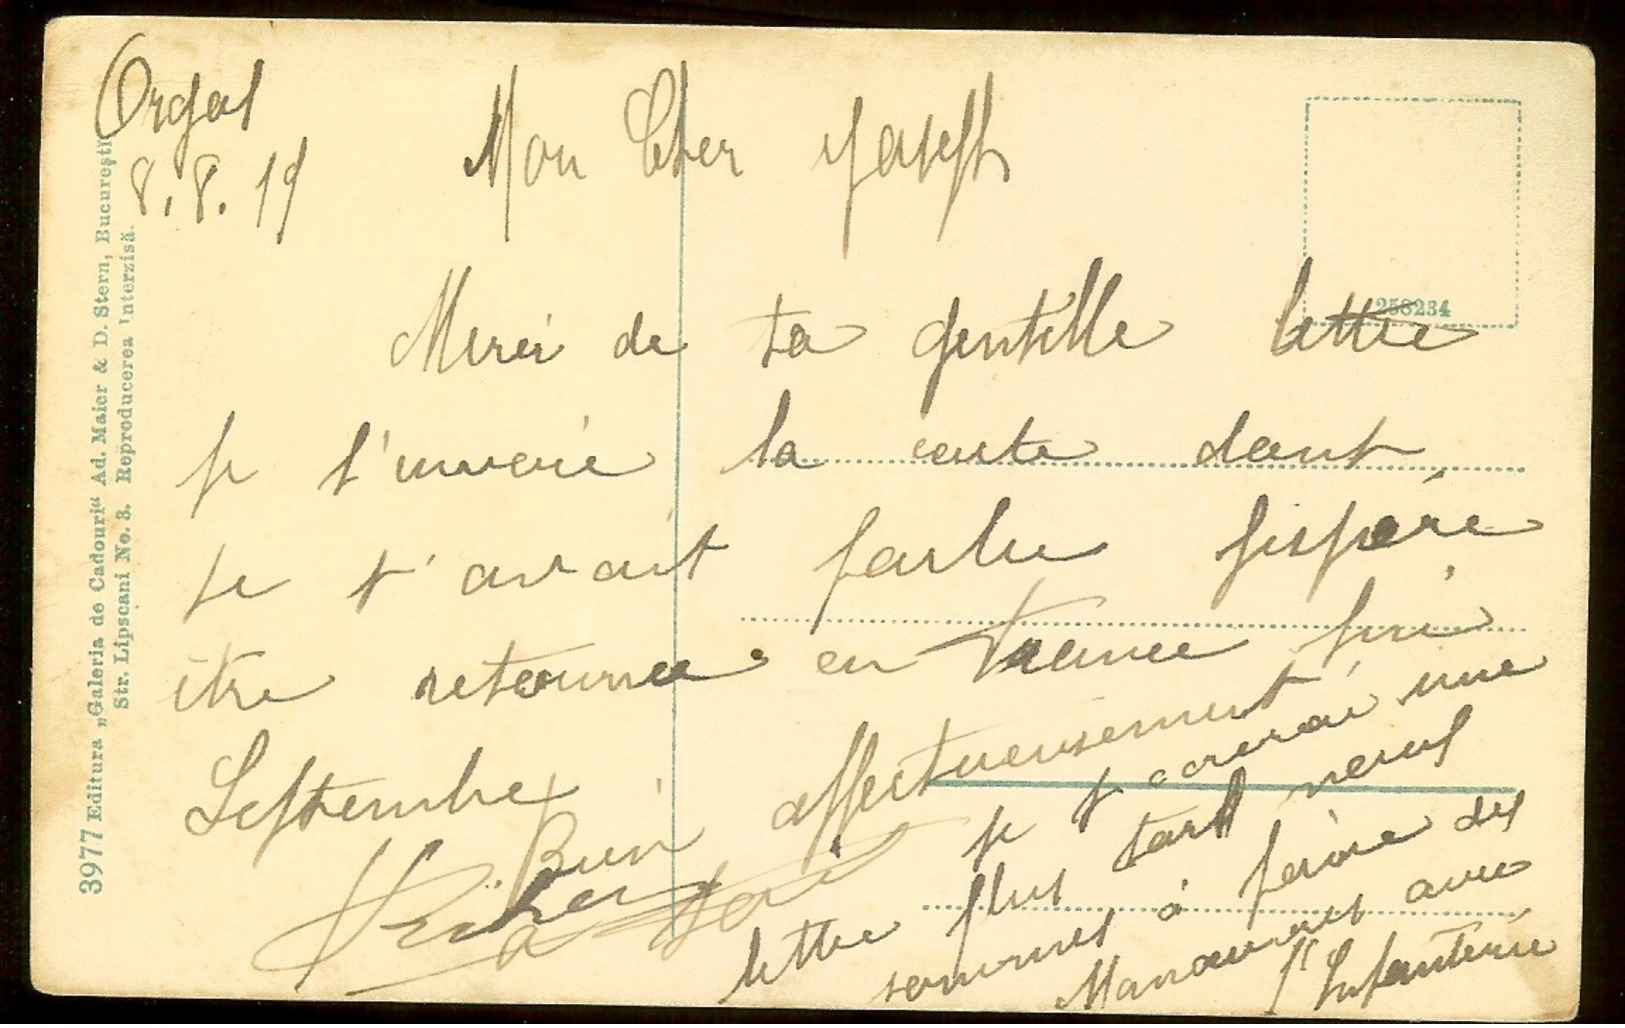 Orgal
8.8.19
Mon Cher Joseph
Merci de ta gentille lettre
je t'envoie la carte dont
je t'avait parlu j'espère
être retournee en France fin
Septembre
Bien affectueusement
a toi
je t'ecrerai une
lettre plus tard nous
sommes à faire des
Manoeuvres avec
l'Infanterie
3977 Editura „Galeria de Cadouri“ Ad. Maier & D. Stern, Bucureşti
Str. Lipscani No. 3. Reproducerea interzisă.
258234